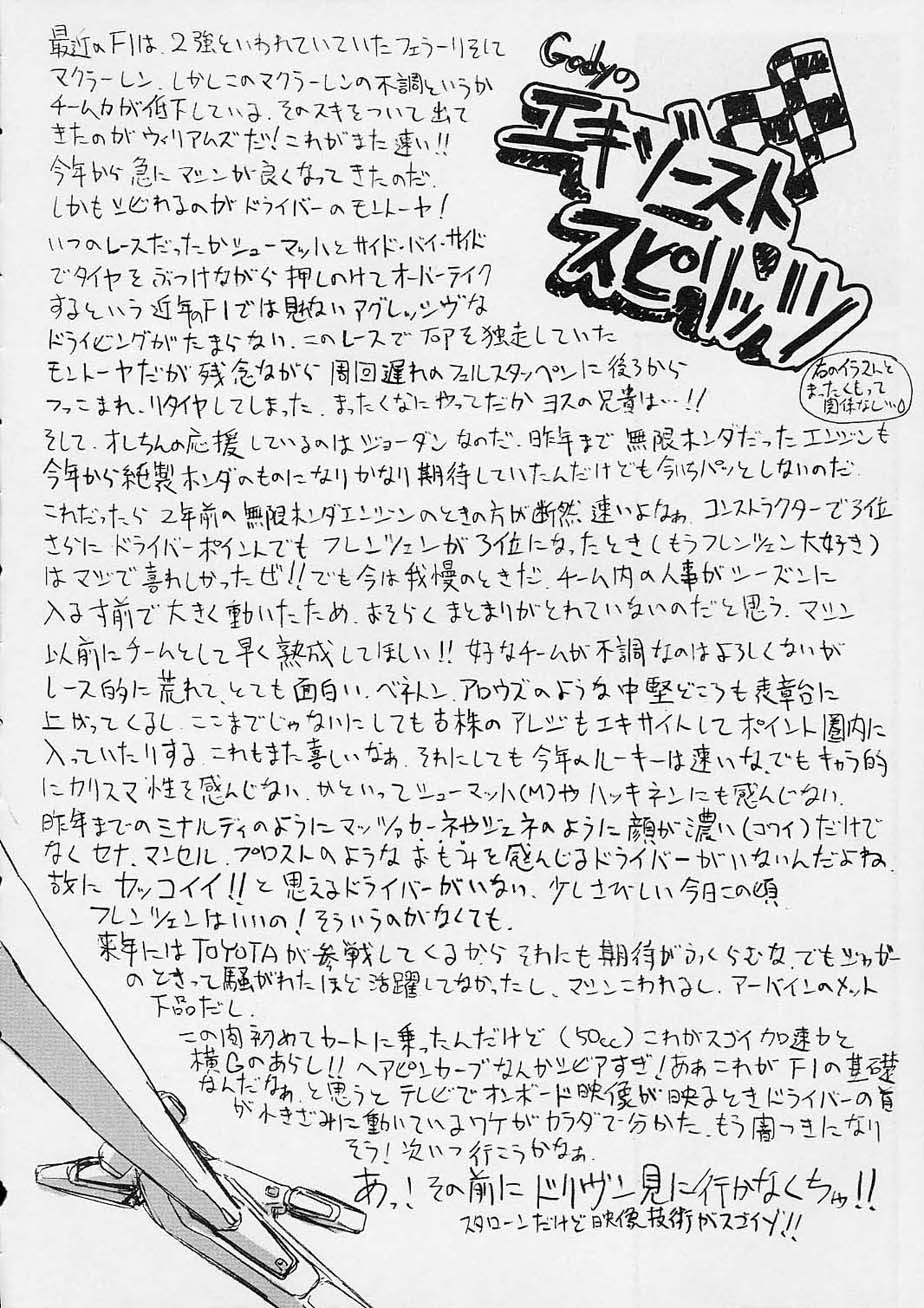 Godyの
エキゾースト
スピリッツ
最近のF1は、2強といわれていていたフェラーリそして
マクラーレン、しかしこのマクラーレンの不調というか
チーム力が低下している、そのスキをついて出て
きたのがウィリアムズだ!これがまた速い!!
今年から急にマシンが良くなってきたのだ、
しかもシビれるのがドライバーのモントーヤ!
いつのレースだったかシューマッハとサイド・バイ・サイド
でタイヤをぶつけながら押しのけてオーバーテイク
するという近年のF1では見ないアグレッシヴな
ドライビングがたまらない、このレースでTOPを独走していた
モントーヤだが残念ながら周回遅れのフェルスタッペンに後ろから
つっこまれ、リタイヤしてしまった、まったくなにやってだかヨスの兄貴は…!!
右のイラストと
まったくもって
関係なし…
そして、オレちんの応援しているのはジョーダンなのだ、昨年まで無限ホンダだったエンジンも
今年から純製ホンダのものになりかなり期待していたんだけども今いちパッとしないのだ、
これだったら2年前の無限ホンダエンジンのときの方が断然速いよなぁ、コンストラクターで3位
さらにドライバーポイントでもフレンツェンが3位になったとき(もうフレンツェン大好き)
はマジで喜れしかったぜ!!でも今は我慢のときだ、チーム内の人事がシーズンに
入るす前で大きく動いたため、よそらくまとまりがとれていないのだと思う、マシン
以前にチームとして早く熟成してほしい!!好なチームが不調なのはよろしくないが
レース的に荒れて、とても面白い、ベネトン、アロウズのような中堅どころも表章台に
上がってくるし、ここまでじゃないにしても古株のアレジもエキサイトしてポイント圏内に
入っていたりする、これもまた喜しいなぁ、それにしても今年のルーキーは速いな、でもキャラ的
にカリスマ性を感んじない、かといってシューマッハ(M)やハッキネンにも感んじない、
昨年までのミナルディのようにマッツァカーネやジェネのように顔が濃い(コワイ)だけで
なくセナ、マンセル、プロストのようなおもみを感んじるドライバーがいないんだよね
故にカッコイイ!!と思えるドライバーがいない、少しさびしい今日この頃
フレンツェンはいいの!そういうのがなくても、
来年にはTOYOTAが参戦してくるからそれにも期待がふくらむな、でもジャガー
のときって騒がわたほど活躍してなかったし、マシンこわれるし、アーバインのメット
下品だし、
この間初めてカートに乗ったんだけど(50cc)これがスゴイ加速力と
横Gのあらし!!ヘアピンカーブなんかシビアすぎ!あぁこれがF1の基礎
なんだなぁ、と思うとテレビでオンボード映像が映るときドライバーの首
が小きざみに動いているワケがカラダで分かた、もう闇つきになり
そう!次いつ行こうかなぁ、
あっ!その前にドリヴン見に行かなくちゃ!!
スタローンだけど映像技術がスゴイゾ!!